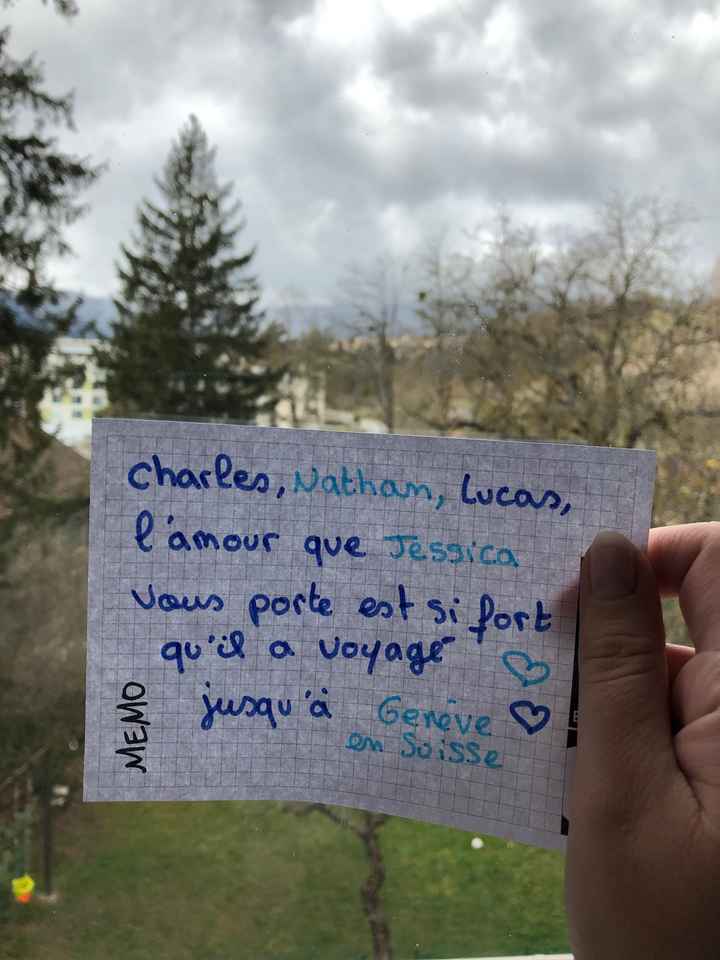 Charles, Nathan, Lucas,
l'amour que Jessica
vous porte est si fort
qu'il a voyagé
jusqu'à Genève
en Suisse
MEMO